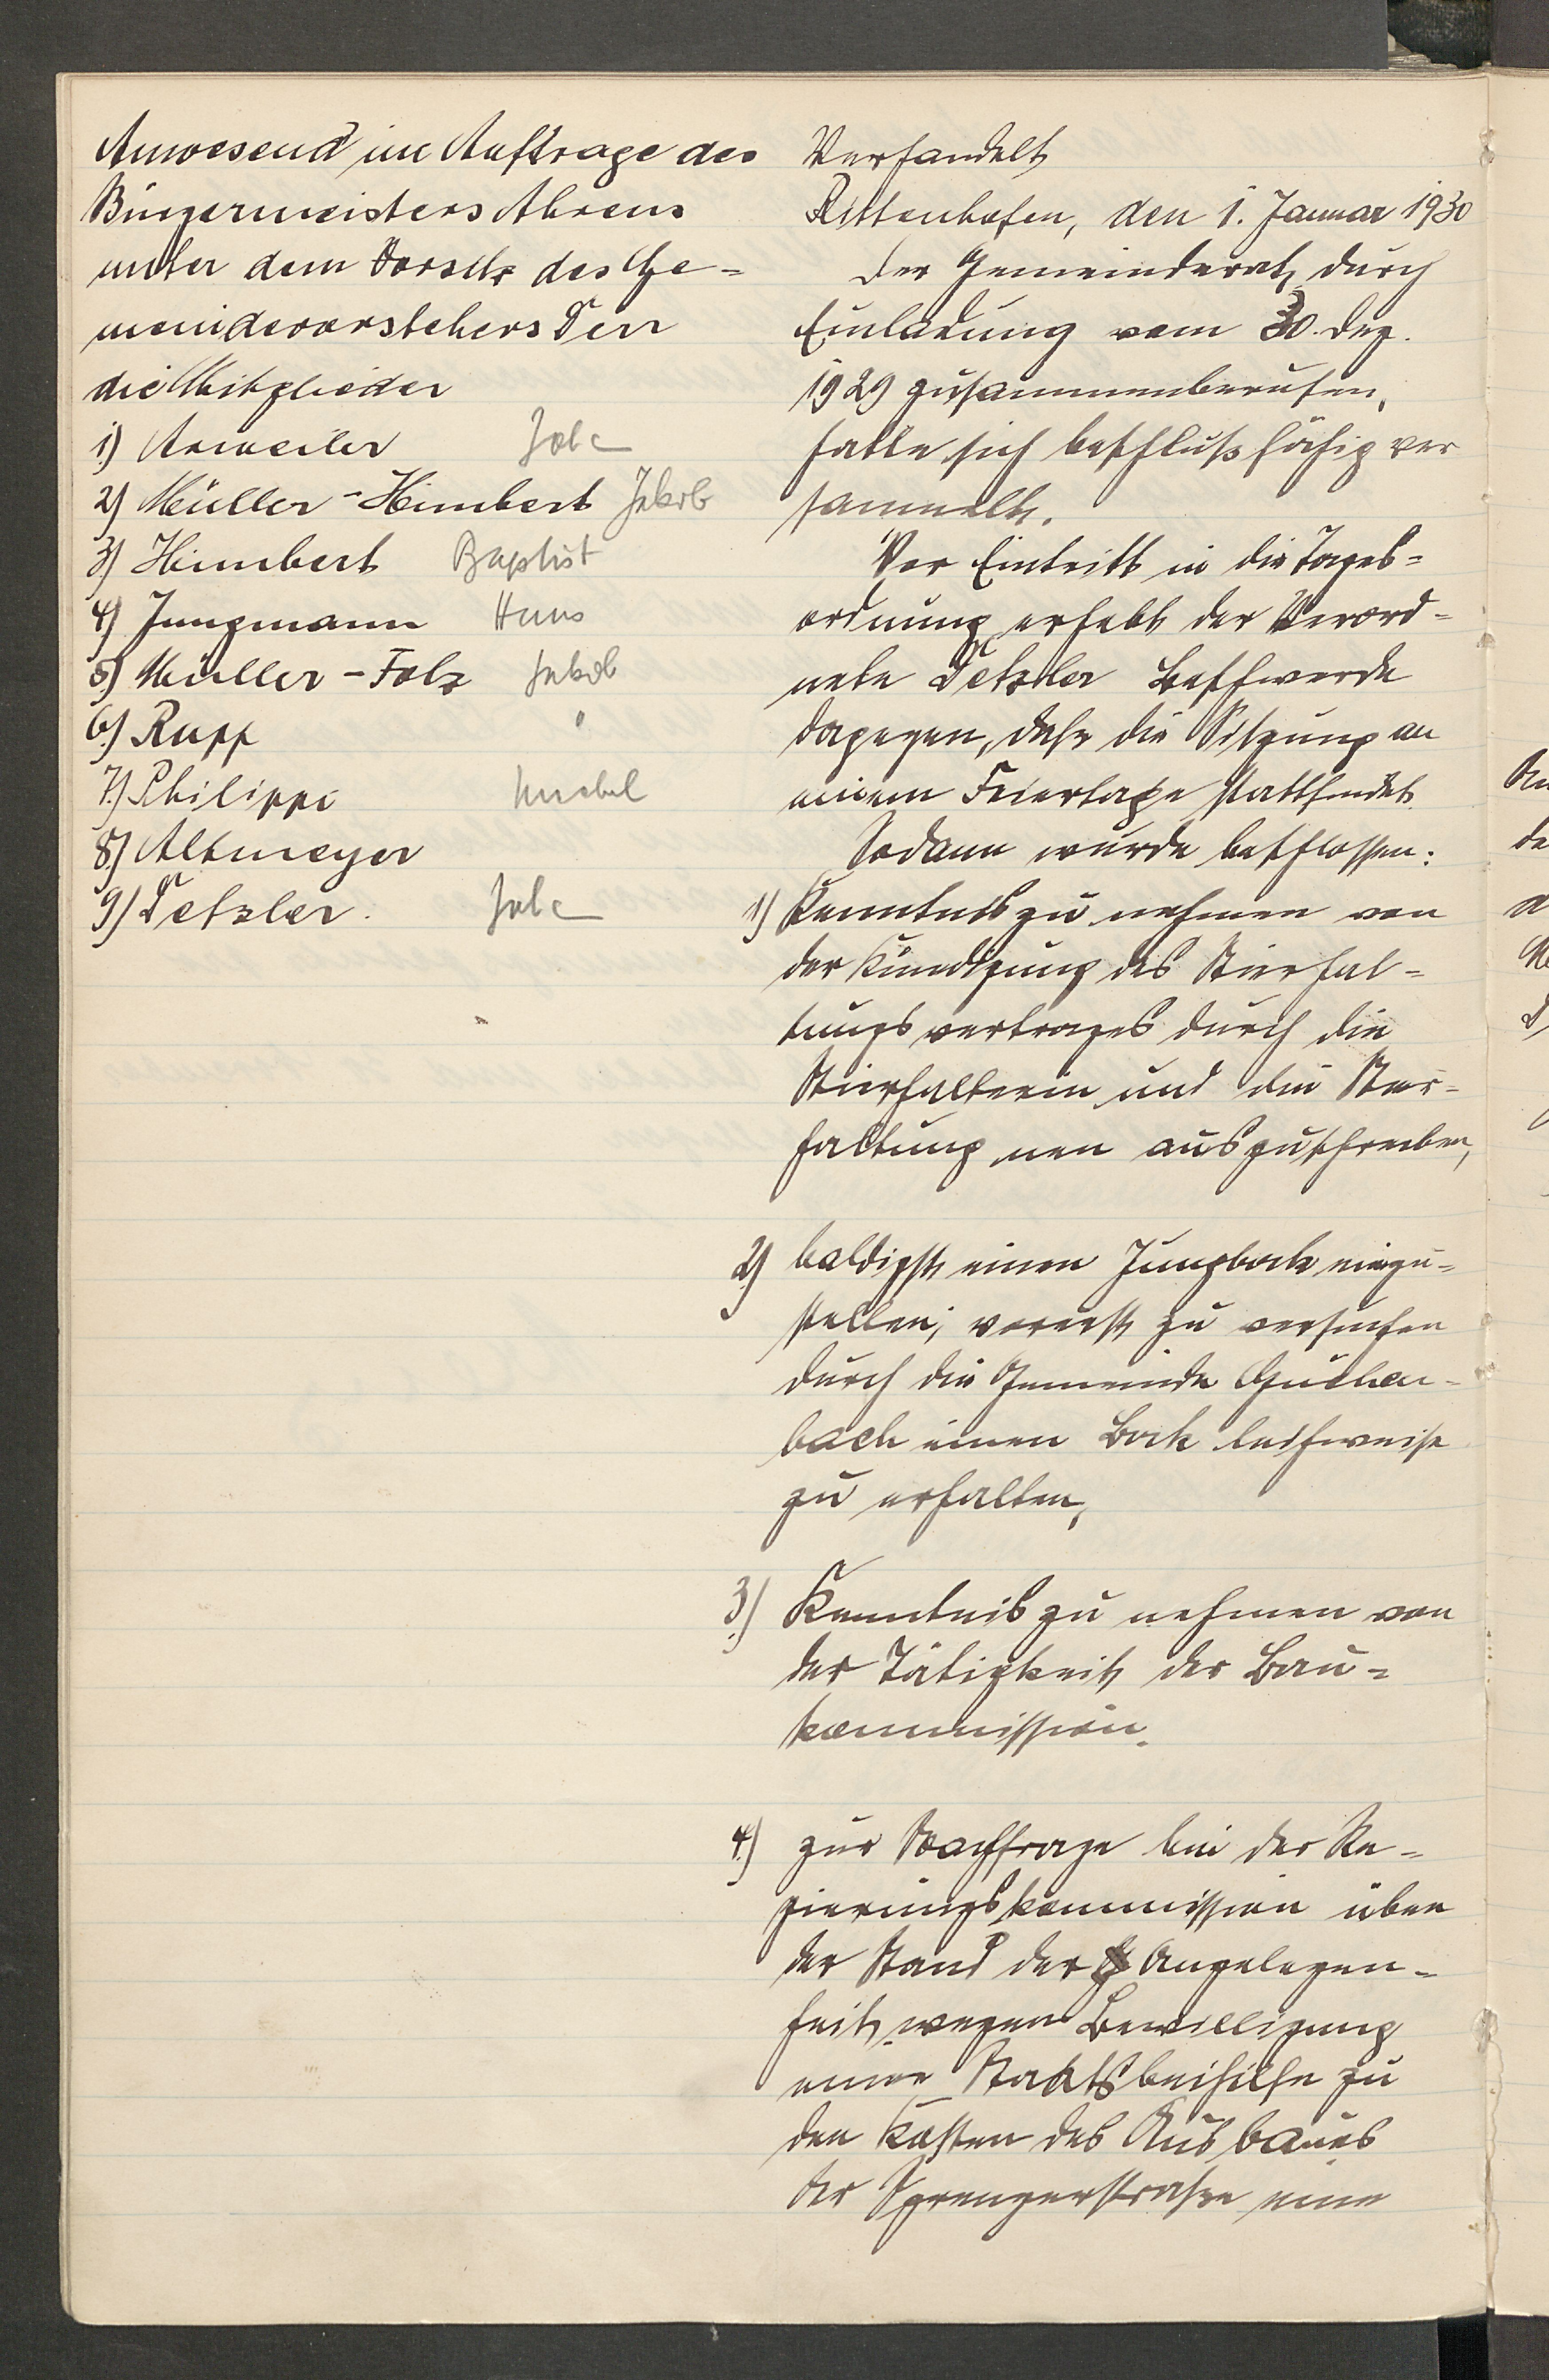 Anwesend im Auftrage des
Bürgermeisters Ahrens
unter dem Vorsitz des Ge=
meindevorstehers Derr
die Mitglieder
1.) Arweiler Joh
2.) Müller-Himbert Jakob
3.) Himbert Baptist
4.) Jungmann Hans
5.) Müller-Folz Jakob
6.) Rupp "
7.) Philippi
8.) Altmeyer
9.) Detzler. Joh
Verhandelt
Rittenhofen, den 1. Januar 1930
Der Gemeinderat, durch
Einladung vom 30. Dez.
1929 zusammenberufen,
hatte sich beschlußfähig ver
sammelt.
Vor Eintritt in die Tages=
ordnung erhebt der Verord=
nete Detzler Beschwerde
dagegen, daß die Sitzung an
einem Feiertage stattfindet.
Sodann wurde beschlossen:
1.) Kenntnis zu nehmen von
der Kündigung des Stierhal=
tungsvertrages durch die
Stierhalterin und die Stier=
haltung neu auszuschreiben,
2.) baldigst einen Jungbock einzu=
stellen; vorerst zu versuchen
durch die Gemeinde Güchen=
bach einen Bock leihweise
zu erhalten,
3.) Kenntnis zu nehmen von
der Tätigkeit der Bau=
kommission.
4.) zur Nachfrage bei der Re=
gierungskommission über
der Stand der Angelegen=
heit wegen Bewilligung
einer Staatsbeihilfe zu
den Kosten des Ausbaues
der Sprengerstraße eine